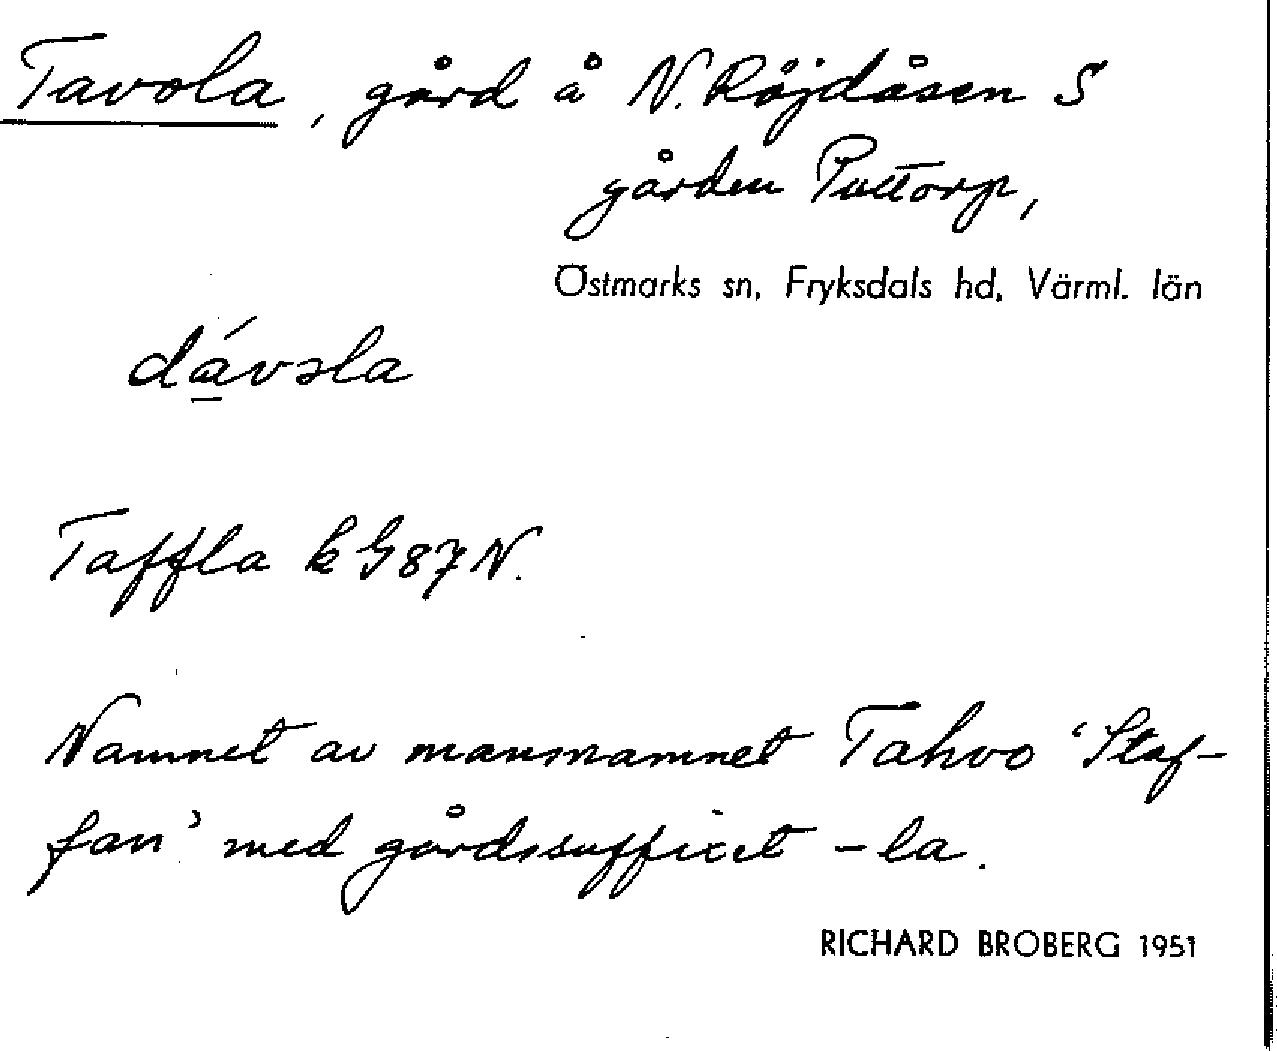 Tavola, gård å N. Röjdåsen S
gården Puttorp,
Östmarks sn, Fryksdals hd, Värml. län
dávola
Taffla k G 87 N.
Namnet av mansnamnet Tahvo 'Staf-
fan' med gårdssuffixet -la.
RICHARD BROBERG 1951